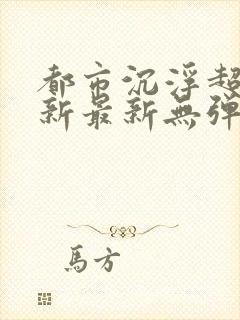 都市沉浮超
新最新無弹
馬方